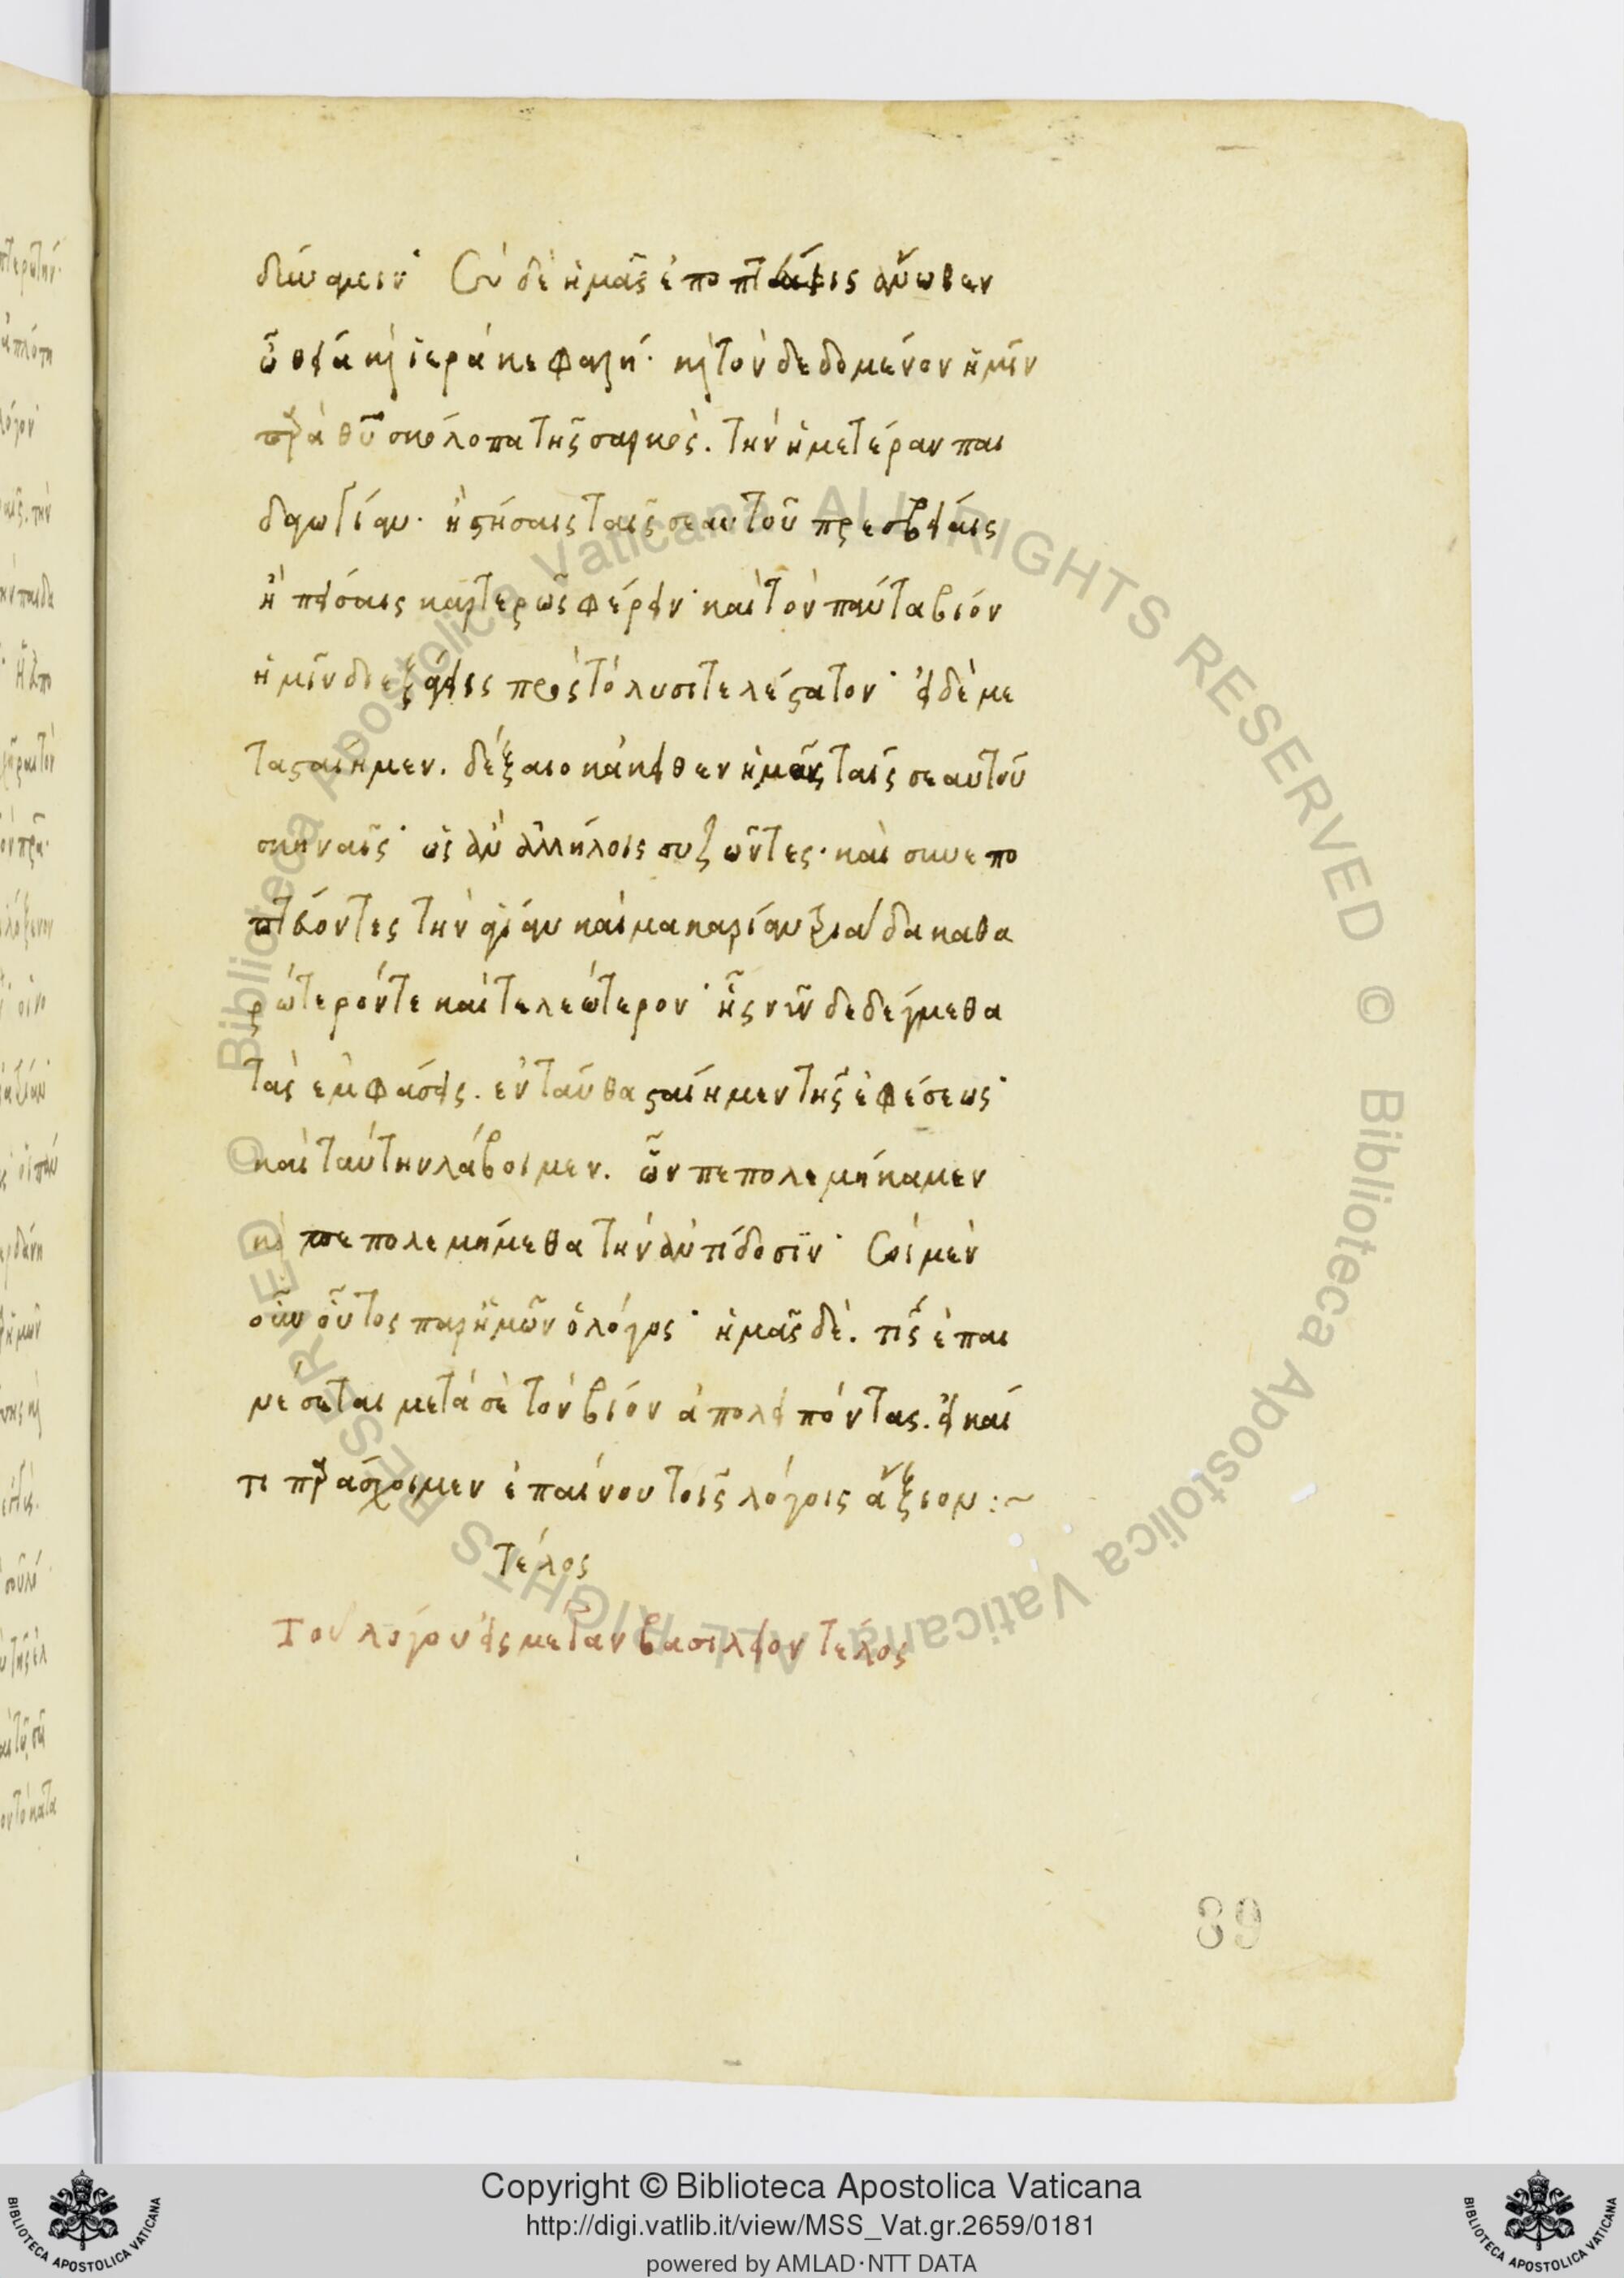 δύναμιν· Σὺ δὲ ἡμᾶς ἐποπτεύεις ἄνωθεν
ὦ θεία καὶ ἱερὰ κεφαλή· καὶ τὸν δεδομένον ἡμῖν
παρὰ θῦ σκόλοπα τῆς σαρκὸς. τὴν ἡμετέραν παι
δαγωγίαν· ἢ στήσαις ταῖς σεαυτοῦ πρεσβείαις
ἢ πείσαις καρτερῶς φέρειν· καὶ τὸν πάντα βίον
ἡμῖν διεξάγεις πρὸς τὸ λυσιτελέστατον· εἰ δὲ με
τασταίημεν. δέξαιο κἀκεῖθεν ἡμᾶς ταῖς σεαυτοῦ
σκηναῖς· ὡς ἂν ἀλλήλοις συζῶντες· καὶ συνεπο
πτεύοντες τὴν ἁγίαν καὶ μακαρίαν τριάδα καθα
ρώτερόν τε καὶ τελεώτερον· ἧς νῦν δεδέγμεθα
τὰς ἐμφάσεις. ἐνταῦθα σταίημεν τῆς ἐφέσεως·
καὶ ταύτην λάβοιμεν. ὧν πεπολεμήκαμεν
καὶ πεπολεμήμεθα τὴν ἀντίδοσϊν· Σοὶ μὲν
οὖν οὗτος παρ' ἡμῶν ὁ λόγος· ἡμᾶς δὲ. τίς ἐπαι
νέσεται μετὰ σὲ τὸν βίον ἀπολειπόντας. εἰ καί
τι παράσχοιμεν ἐπαίνου τοῖς λόγοις ἄξιον :~
Τέλος
Τοῦ λόγου εἰς μέγαν βασίλειον τέλος
89
Copyright © Biblioteca Apostolica Vaticana
http://digi.vatlib.it/view/MSS_Vat.gr.2659/0181
powered by AMLAD·NTT DATA
BIBLIOTECA APOSTOLICA VATICANA
BIBLIOTECA APOSTOLICA VATICANA
© Biblioteca Apostolica Vaticana ALL RIGHTS RESERVED
© Biblioteca Apostolica Vaticana ALL RIGHTS RESERVED